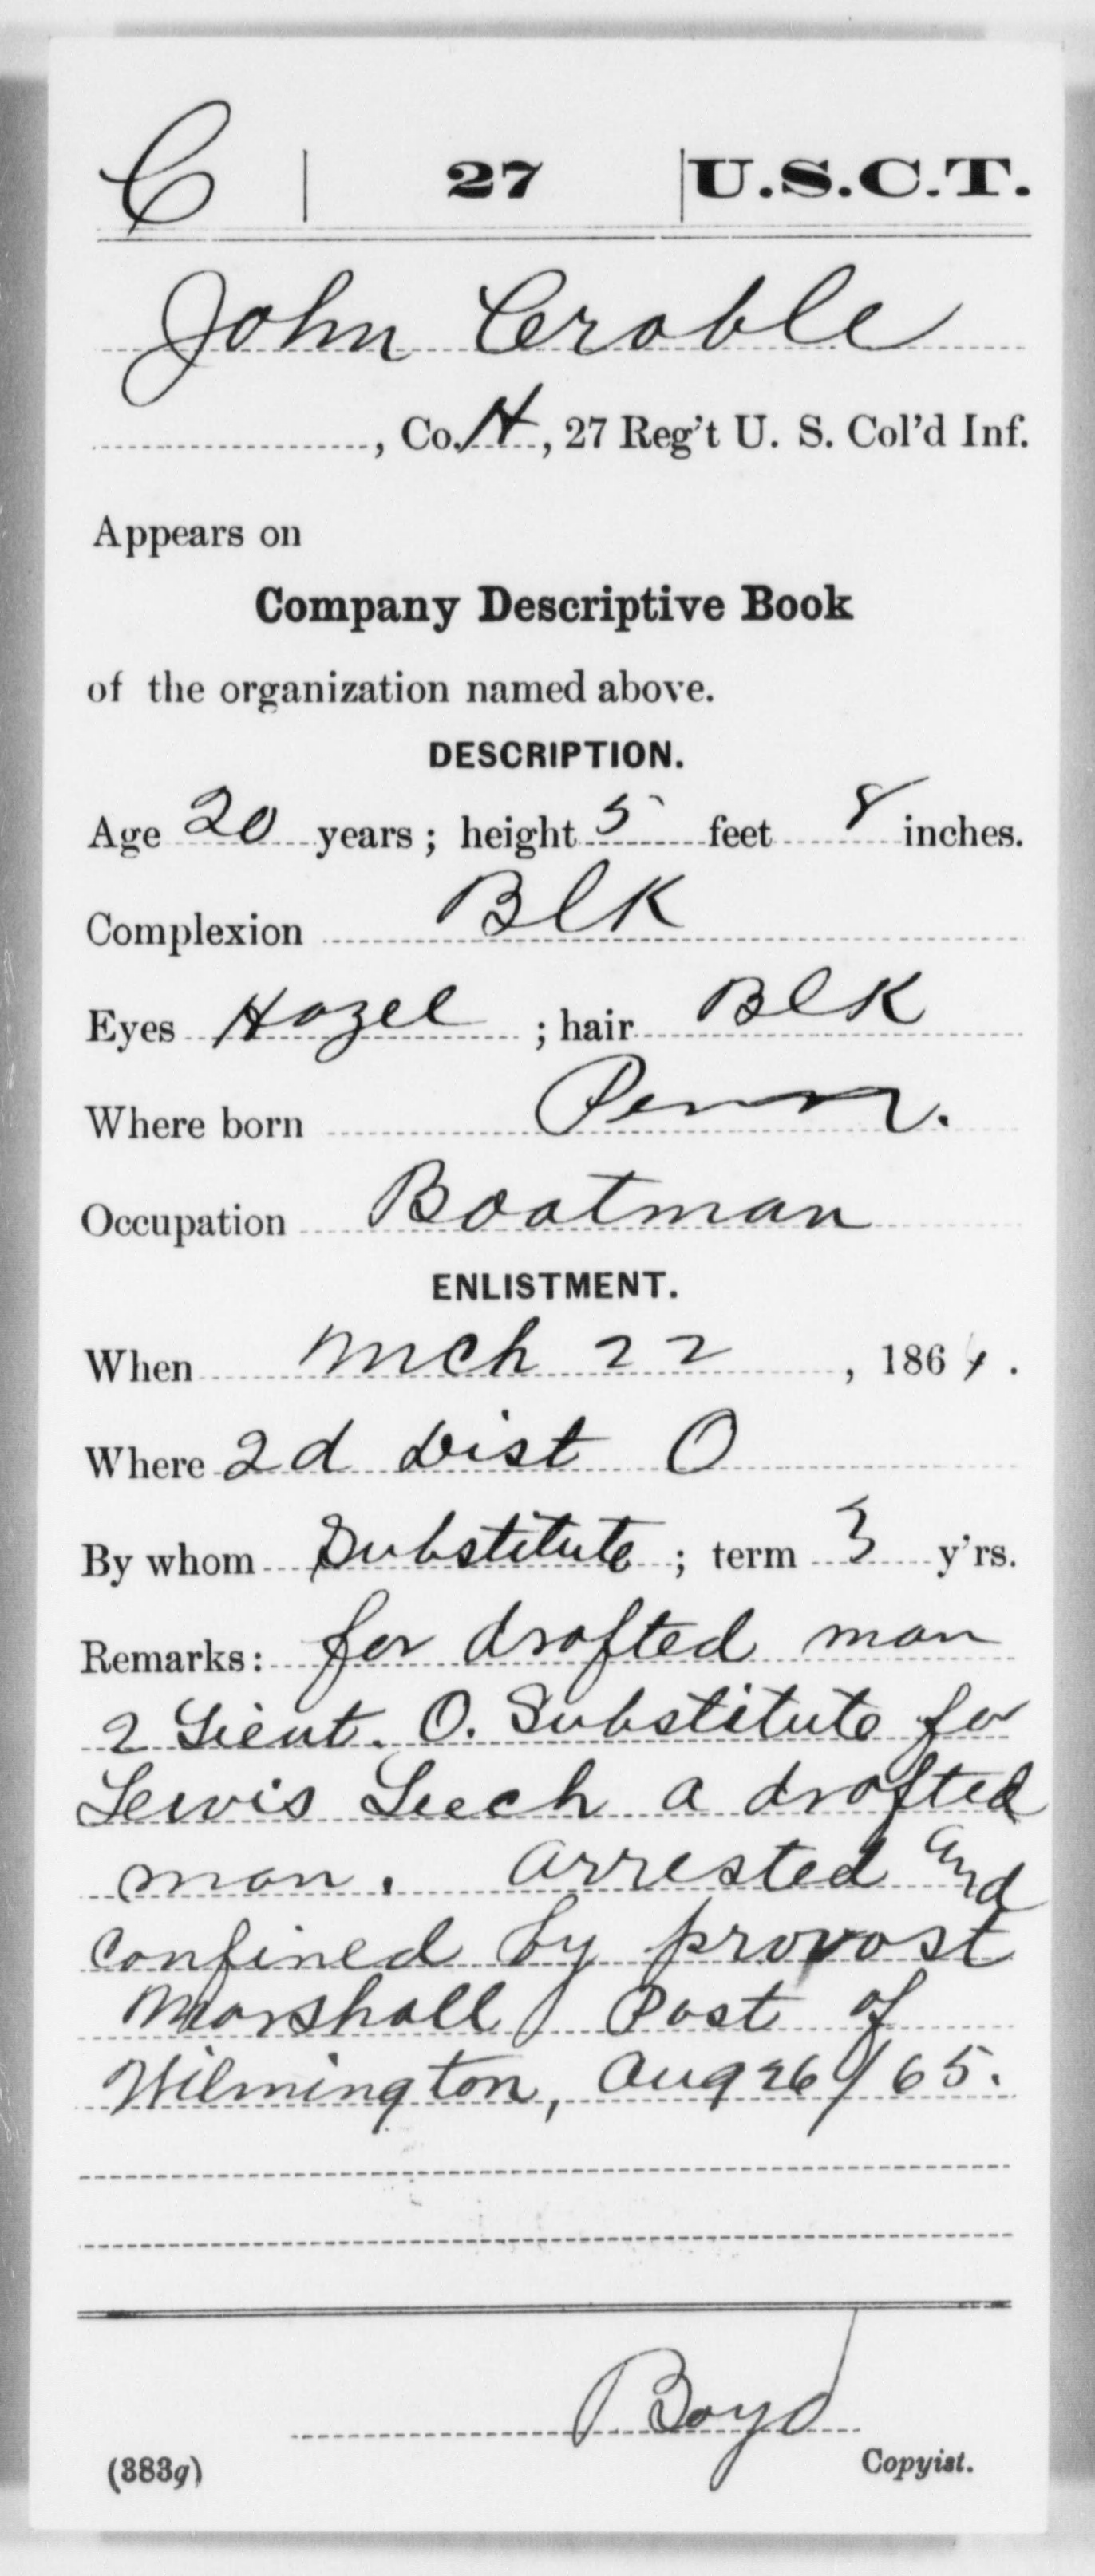 C | 27 | U.S.C.T.
John Croble
, Co. H, 27 Reg't U. S. Col'd Inf.
Appears on
Company Descriptive Book
of the organization named above.
DESCRIPTION.
Age 20 years; height 5 feet 8 inches.
Complexion Blk
Eyes Hazel; hair Blk
Where born Penn.
Occupation Boatman
ENLISTMENT.
When Mch 22, 1864.
Where 2d Dist O
By whom Substitute; term 3 y'rs.
Remarks: for drafted man
2 Lieut. O. Substitute for
Lewis Leech a drafted
man. Arrested and
confined by provost
Marshall Post of
Wilmington, Aug 26/65.
Boyd
(383g) Copyist.